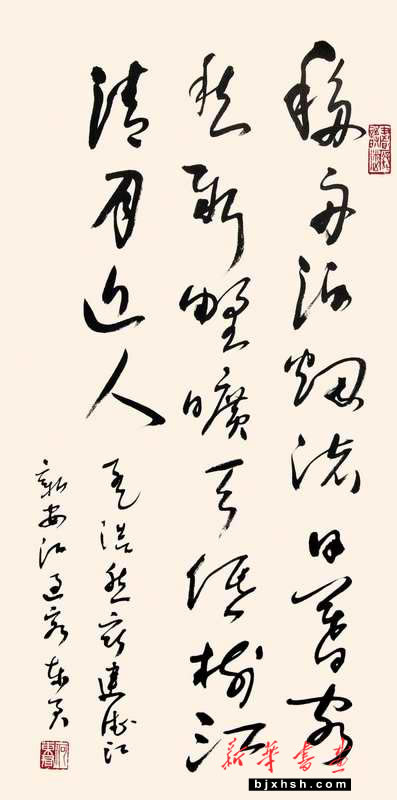 移舟泊煙渚日暮客
愁新野曠天低樹江
清月近人
孟浩然宿建德江
新安江
新华书画
bjxhsh.com